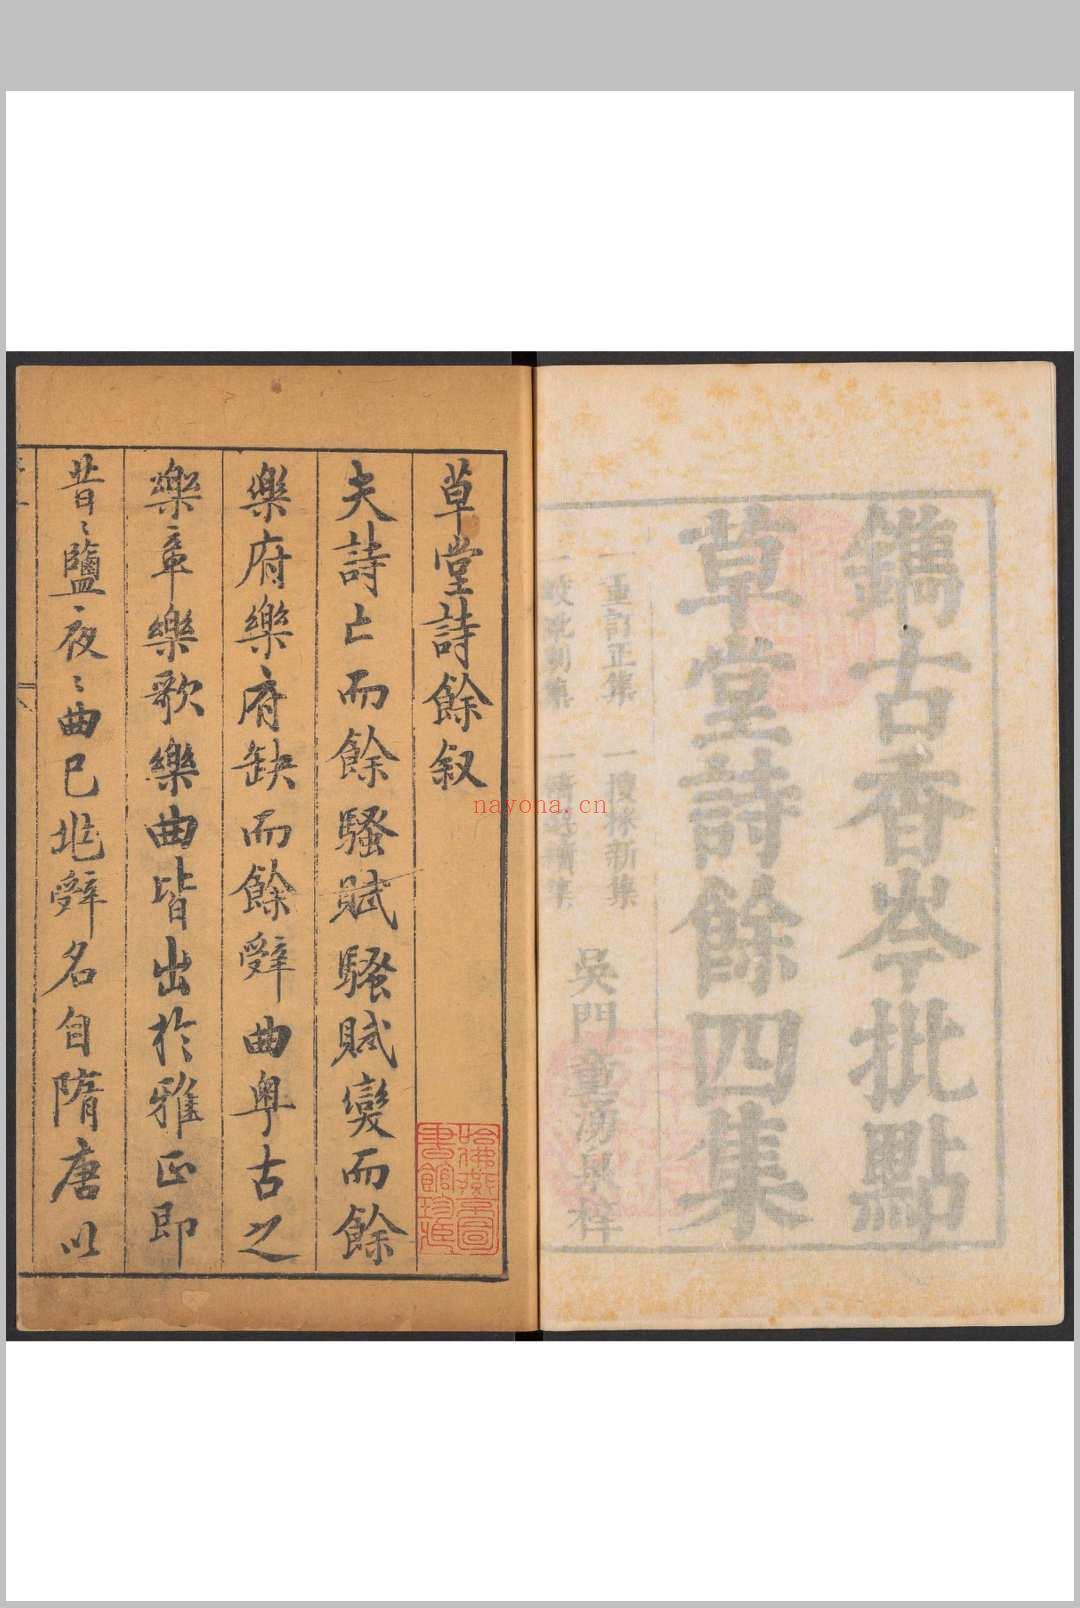 鐫古香岑批點
草堂詩餘四集
一重訂正集
一搜採新集
吳門童湧泉梓
草堂詩餘叙
夫詩亡而餘騷賦騷賦變而餘
樂府樂府缺而餘辭曲粤古之
樂章樂歌樂曲皆出於雅正即
昔昔鹽夜夜曲已兆辭名自隋唐以
哈佛燕京圖
書館珍臧
nayona.cn